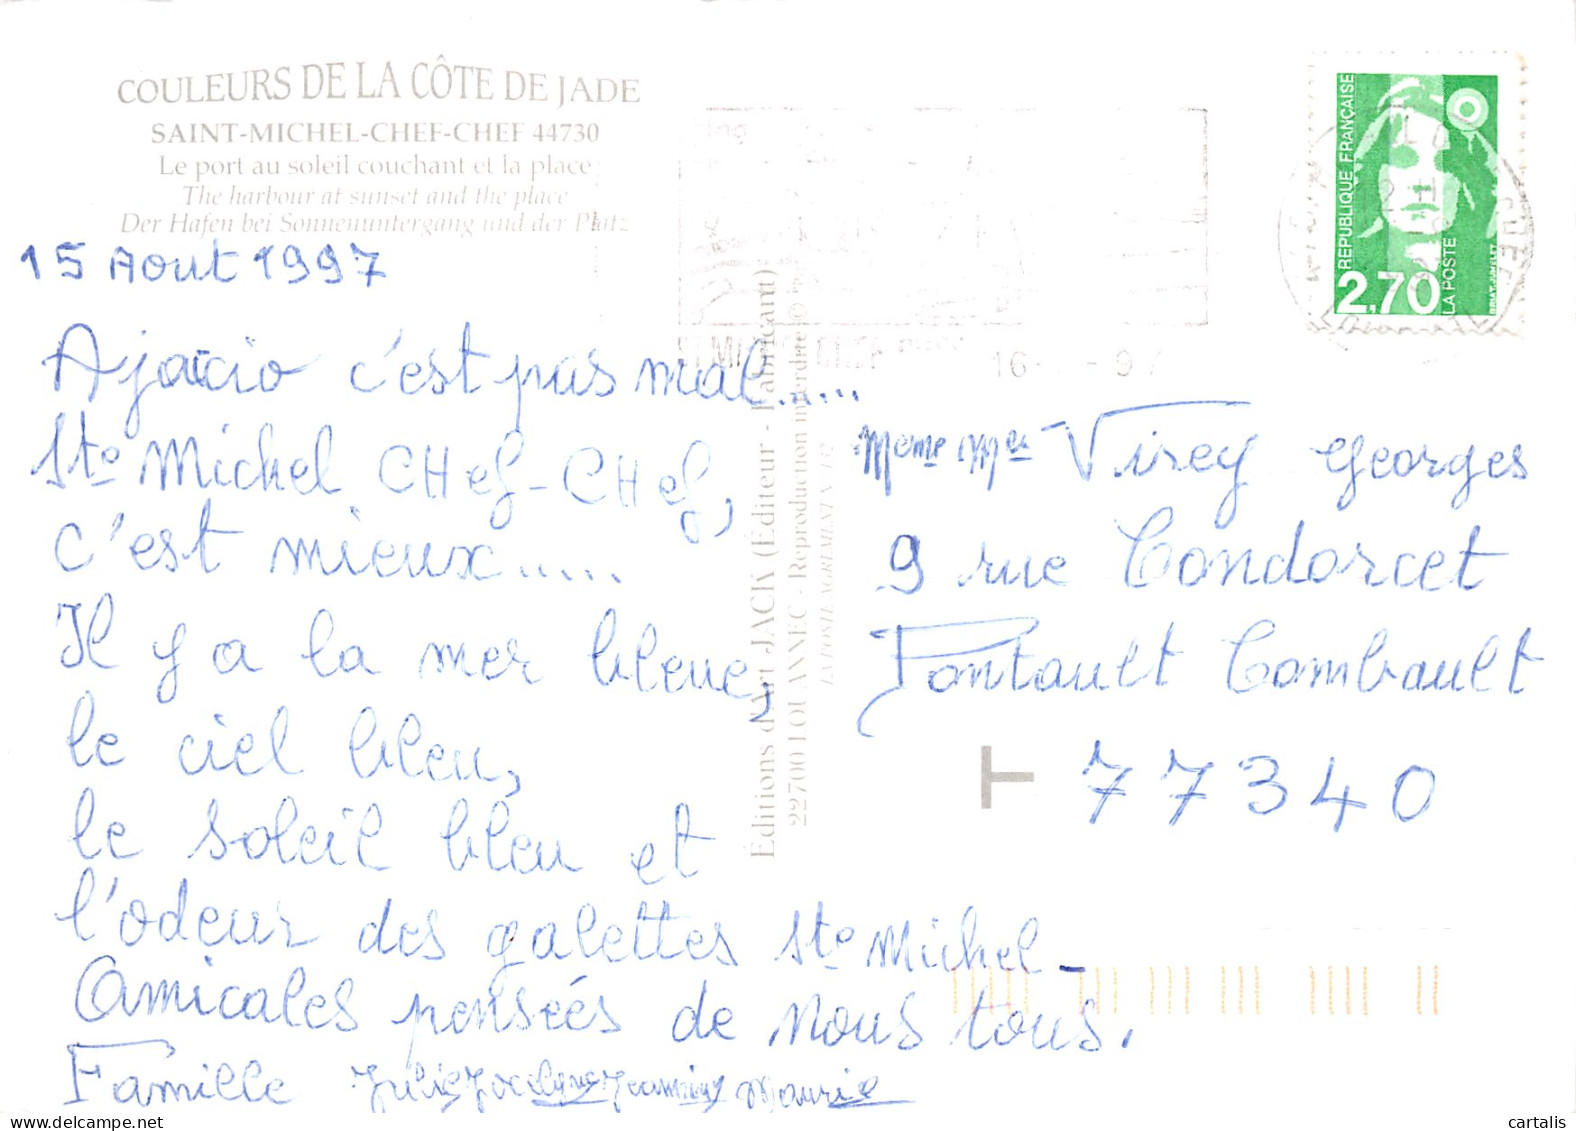 COULEURS DE LA CÔTE DE JADE
SAINT-MICHEL-CHEF-CHEF 44730
Le port au soleil couchant et la place
The harbour at sunset and the place
Der Hafen bei Sonnenuntergang und der Platz
15 Aout 1997
Ajaccio c'est pas mal.....
Ste Michel CHef-CHef,
c'est mieux.....
Il y a la mer bleue,
le ciel bleu,
le soleil bleu et
l'odeur des galettes Ste Michel-
Amicales pensées de nous tous.
Famille Julie Jocelyne Jeannine Maurice
Éditions d'Art JACK (Éditeur - Fabricant)
22700 LOUANNEC - Reproduction interdite ©
LA POSTE AGREMENT N°
RÉPUBLIQUE FRANÇAISE
2,70
LA POSTE
BRIAT-JUMELET
16 - - 97
Virey Georges
9 rue Condorcet
Pontault Combault
T 77340
cartalis